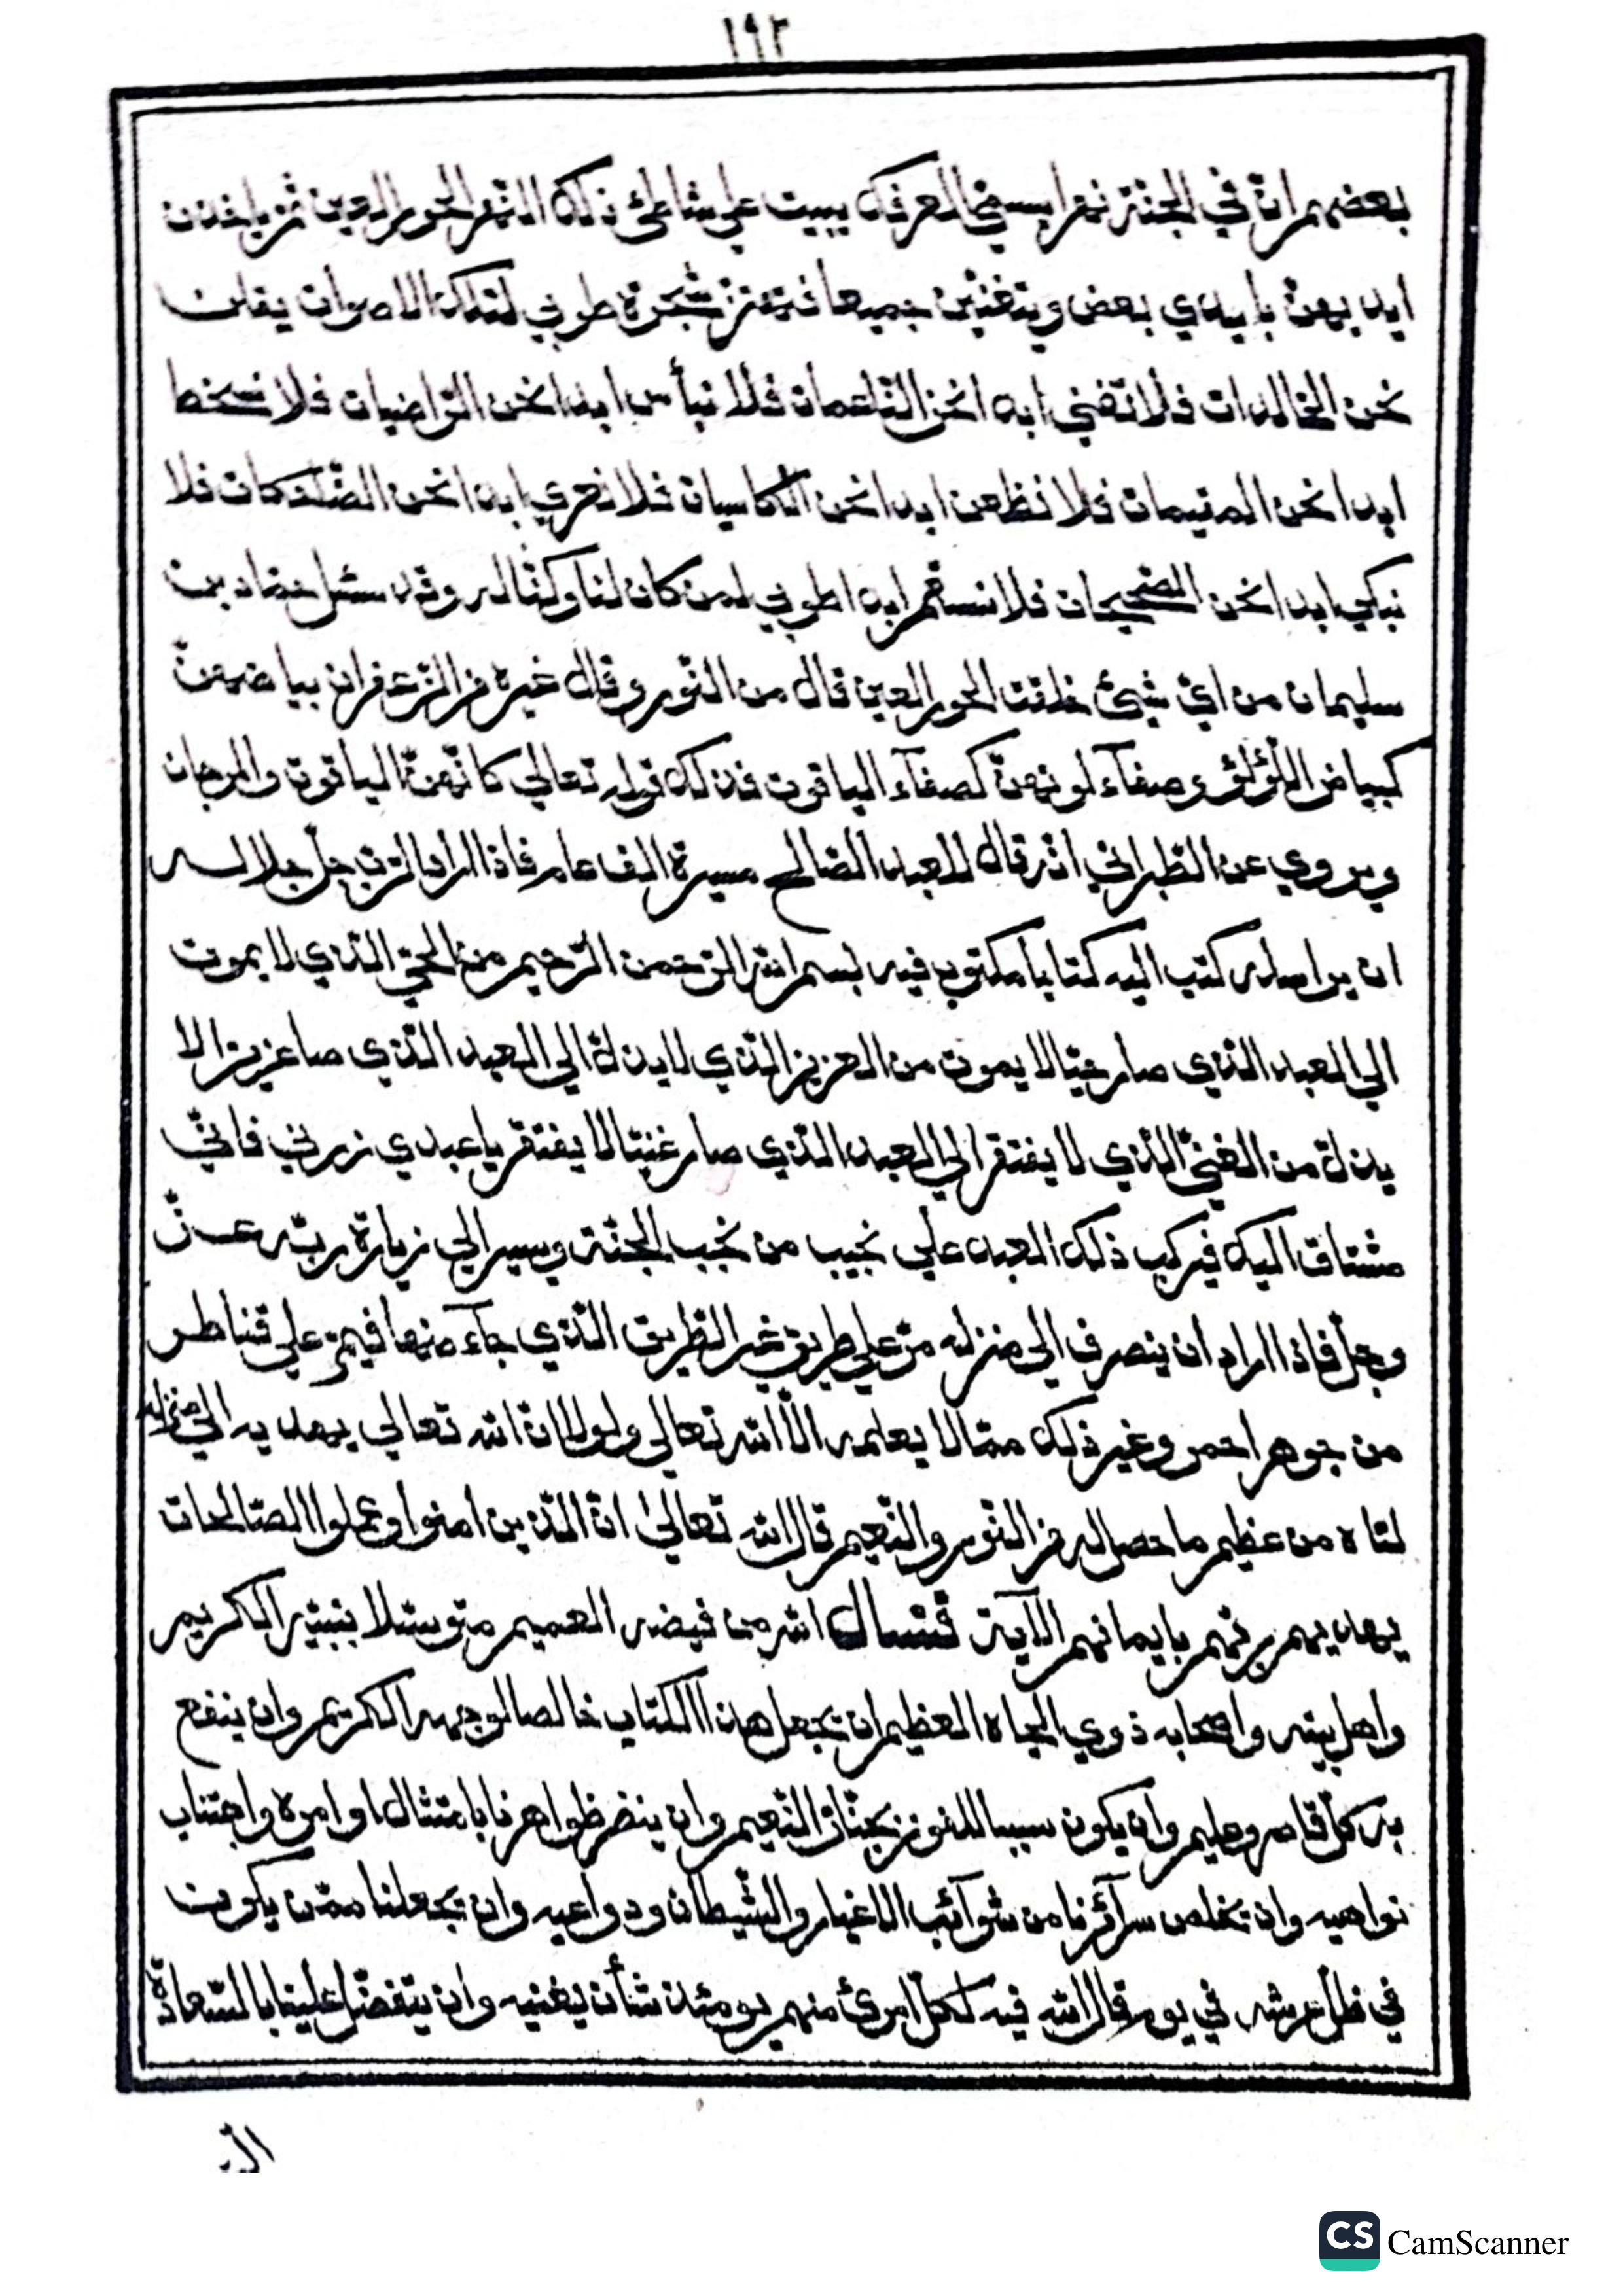 ١٩٢
بعضهم انّ في الجنّة نهرا يسمّي العرفك يبيت علي شاطئ ذلك النّهر الحور العين ثمّ ياخذن
ايديهنّ بايدي بعض ويتغنّين جميعا فتهتز شجرة طوبي لتلك الاصوات يقلن
نحن الخالدات فلا نفني ابدا نحن النّاعمات فلا نبأس ابدا نحن الرّاضيات فلا نسخط
ابدا نحن المقيمات فلا نظعن ابدا نحن الكاسيات فلا نعري ابدا نحن الضّاحكات فلا
نبكي ابدا نحن الصّحيحات فلا نسقم ابدا طوبي لمن كان لنا وكنّا له وقد سئل حمّاد بن
سليمان من ايّ شيئ خلقت الحور العين قال من النّور وقال غيره من الزّعفران بياضهنّ
كبياض اللّؤلؤ وصفآء لونهنّ كصفآء الياقوت فذلك قوله تعالي كانّهنّ الياقوت والمرجان
ويروي عن الطّبراني انّه قال للعبد الصّالح مسيرة الف عام فاذا اراد الرّبّ جلّ جلاله
ان يراسله كتب اليه كتابا مكتوب فيه بسم الله الرّحمن الرّحيم من الحيّ الّذي لا يموت
الي العبد الّذي صار حيّا لا يموت من العزيز الّذي لا يذلّ الي العبد الّذي صا عزيزا لا
يذلّ من الغنيّ الّذي لا يفتقر الي العبد الّذي صار غنيّا لا يفتقر يا عبدي زرني فانّي
مشتاق اليك فيركب ذلك العبد علي نجيب من نجب الجنّة ويسير الي زيارة ربّه عزّ
وجلّ فاذا اراد ان ينصرف الى منزله مرّ علي طريق غير الطّريق الّذي جآء منها فيمرّ علي قناطر
من جوهر احمر وغير ذلك ممّا لا يعلمه الّا الله تعالي ولولا انّ الله تعالي يهديه الي منزله
لتاه من عظيم ما حصل له من النّور والنّعيم قال الله تعالي انّ الّذين امنوا وعملوا الصّالحات
يهديهم ربّهم بايمانهم الآية فنسأل الله من فيضه العميم متوسّلا بنبيّه الكريم
واهل بيته واصحابه ذوي الجاه العظيم ان يجعل هذا الكتاب خالصا لوجهه الكريم وان ينفع
به كلّ قاصر وعليم وان يكون سببا للفوز بجنّات النّعيم وان ينضر ظواهرنا بامتثال اوامره واجتناب
نواهيه وان يخلص سرآئرنا من شوآئب الاغيار والشّيطان ودواعيه وان يجعلنا ممّن يكون
في ظلّ عرشه في يوم قال الله فيه لكلّ امرئ منهم يومئذ شأن يغنيه وان يتفضّل علينا بالسّعادة
CS CamScanner